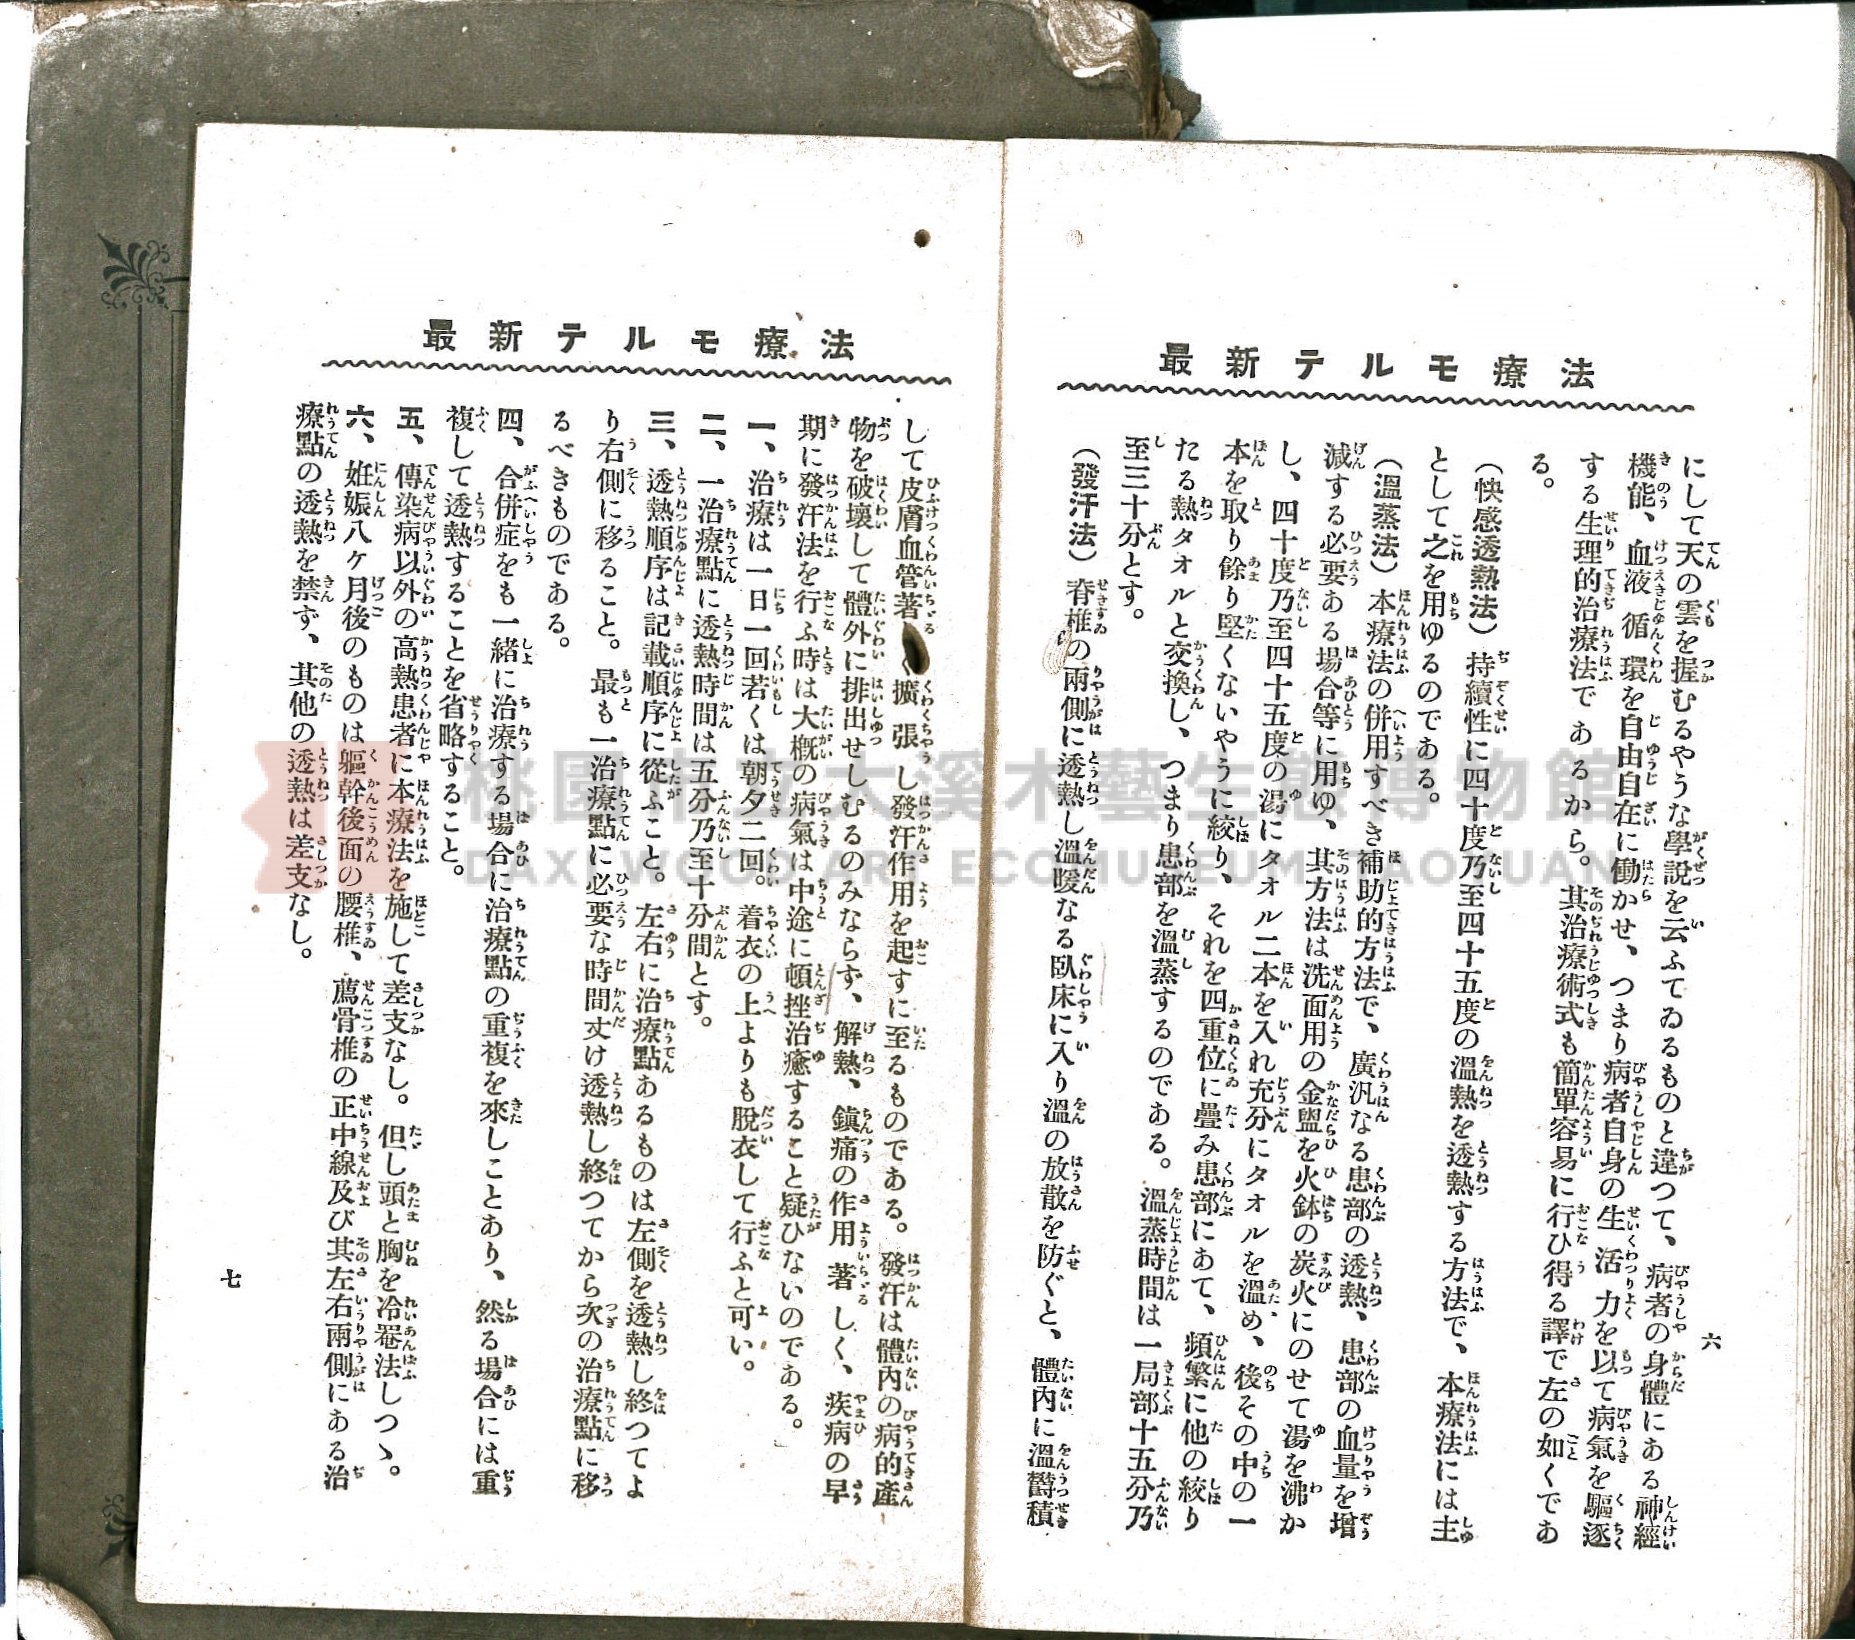 最新テルモ療法
にして天の雲を握むるやうな學說を云ふてゐるものと違つて、病者の身體にある神經
機能、血液循環を自由自在に働かせ、つまり病者自身の生活力を以て病氣を驅逐
する生理的治療法であるから。其治療術式も簡單容易に行ひ得る譯で左の如くであ
る。
(快感透熱法)持續性に四十度乃至四十五度の溫熱を透熱する方法で、本療法には主
として之を用ゆるのである。
(溫蒸法)本療法の併用すべき補助的方法で、廣汎なる患部の透熱、患部の血量を增
減する必要ある場合等に用ゆ、其方法は洗面用の金盥を火鉢の炭火にのせて湯を沸か
し、四十度乃至四十五度の湯にタオル二本を入れ充分にタオルを溫め、後その中の一
本を取り餘り堅くないやうに絞り、それを四重位に疊み患部にあて、頻繁に他の絞り
たる熱タオルと交換し、つまり患部を溫蒸するのである。溫蒸時間は一局部十五分乃
至三十分とす。
(發汗法)脊椎の兩側に透熱し溫暖なる臥床に入り溫の放散を防ぐと、體內に溫欝積
六
最新テルモ療法
して皮膚血管著く擴張し發汗作用を起すに至るものである。發汗は體內の病的產
物を破壞して體外に排出せしむるのみならず、解熱、鎭痛の作用著しく、疾病の早
期に發汗法を行ふ時は大槪の病氣は中途に頓挫治癒すること疑ひないのである。
一、治療は一日一回若くは朝夕二回。着衣の上よりも脫衣して行ふと可い。
二、一治療點に透熱時間は五分乃至十分間とす。
三、透熱順序は記載順序に從ふこと。左右に治療點あるものは左側を透熱し終つてよ
り右側に移ること。最も一治療點に必要な時間丈け透熱し終つてから次の治療點に移
るべきものである。
四、合併症をも一緖に治療する場合に治療點の重複を來しことあり、然る場合には重
複して透熱することを省略すること。
五、傳染病以外の高熱患者に本療法を施して差支なし。但し頭と胸を冷罨法しつゝ。
六、姙娠八ヶ月後のものは軀幹後面の腰椎、薦骨椎の正中線及び其左右兩側にある治
療點の透熱を禁ず、其他の透熱は差支なし。
七
桃園市立大溪木藝生態博物館
DAXI WOOD ART ECOMUSEUM TAOYUAN